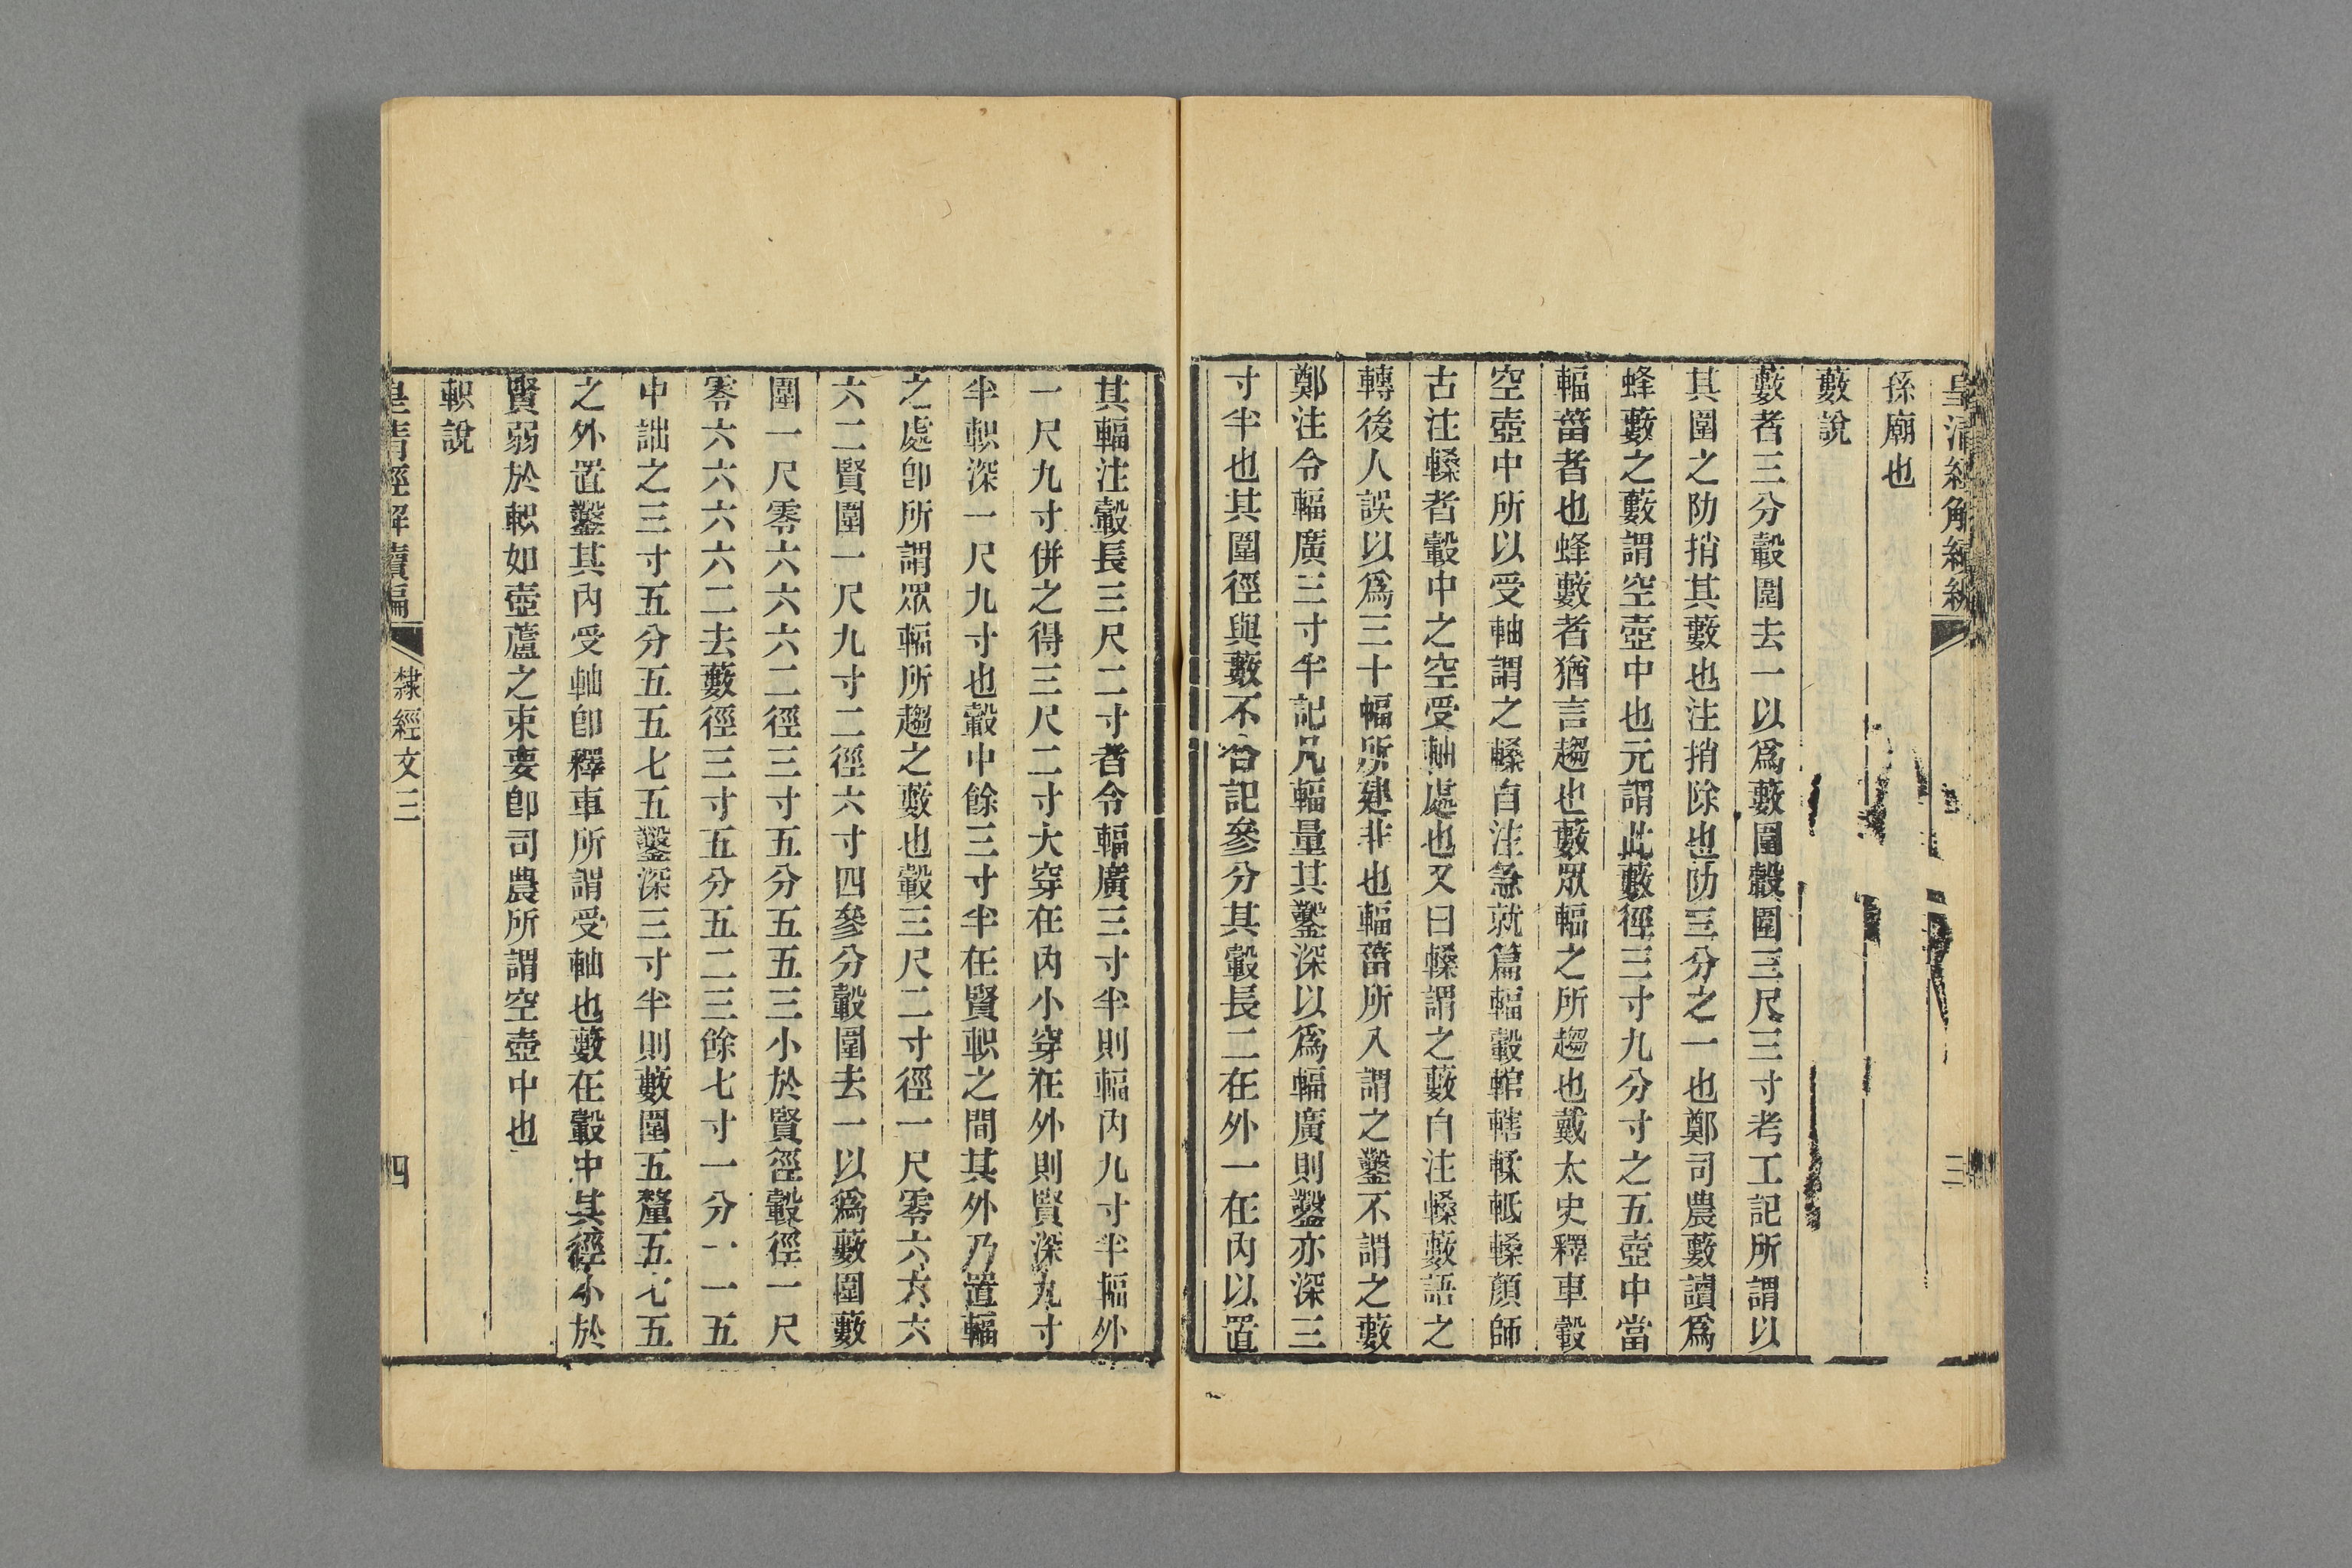 皇清經解續編
三
孫廟也
藪說
藪者三分轂圍去一以爲藪圍轂圍三尺三寸考工記所謂以
其圍之阞捎其藪也注捎除也阞三分之一也鄭司農藪讀爲
蜂藪之藪謂空壺中也元謂此藪徑三寸九分寸之五壺中當
輻菑者也蜂藪者猶言趨也藪眾輻之所趨也戴太史釋車轂
空壺中所以受軸謂之𨎹自注急就篇輻轂輨轄輮軝𨎹顏師
古注𨎹者轂中之空受軸處也又曰𨎹謂之藪自注𨎹藪語之
轉後人誤以爲三十輻所建非也輻菑所入謂之鑿不謂之藪
鄭注令輻廣三寸半記凡輻量其鑿深以爲輻廣則鑿亦深三
寸半也其圍徑與藪不合記參分其轂長二在外一在內以置
其輻注轂長三尺二寸者令輻廣三寸半則輻內九寸半輻外
一尺九寸併之得三尺二寸大穿在內小穿在外則賢深九寸
半軹深一尺九寸也轂中餘三寸半在賢軹之間其外乃置輻
之處卽所謂眾輻所趨之藪也轂三尺二寸徑一尺零六六六
六二賢圍一尺九寸二徑六寸四參分轂圍去一以爲藪圍藪
圍一尺零六六六二徑三寸五分五五三小於賢徑轂徑一尺
零六六六六二去藪徑三寸五分五二三餘七寸一分一一五
中詘之三寸五分五五七五鑿深三寸半則藪圍五釐五七五
之外置鑿其內受軸卽釋車所謂受軸也藪在轂中其徑小於
賢弱於軹如壺蘆之束要卽司農所謂空壺中也
軹說
皇清經解續編
隸經文三
四